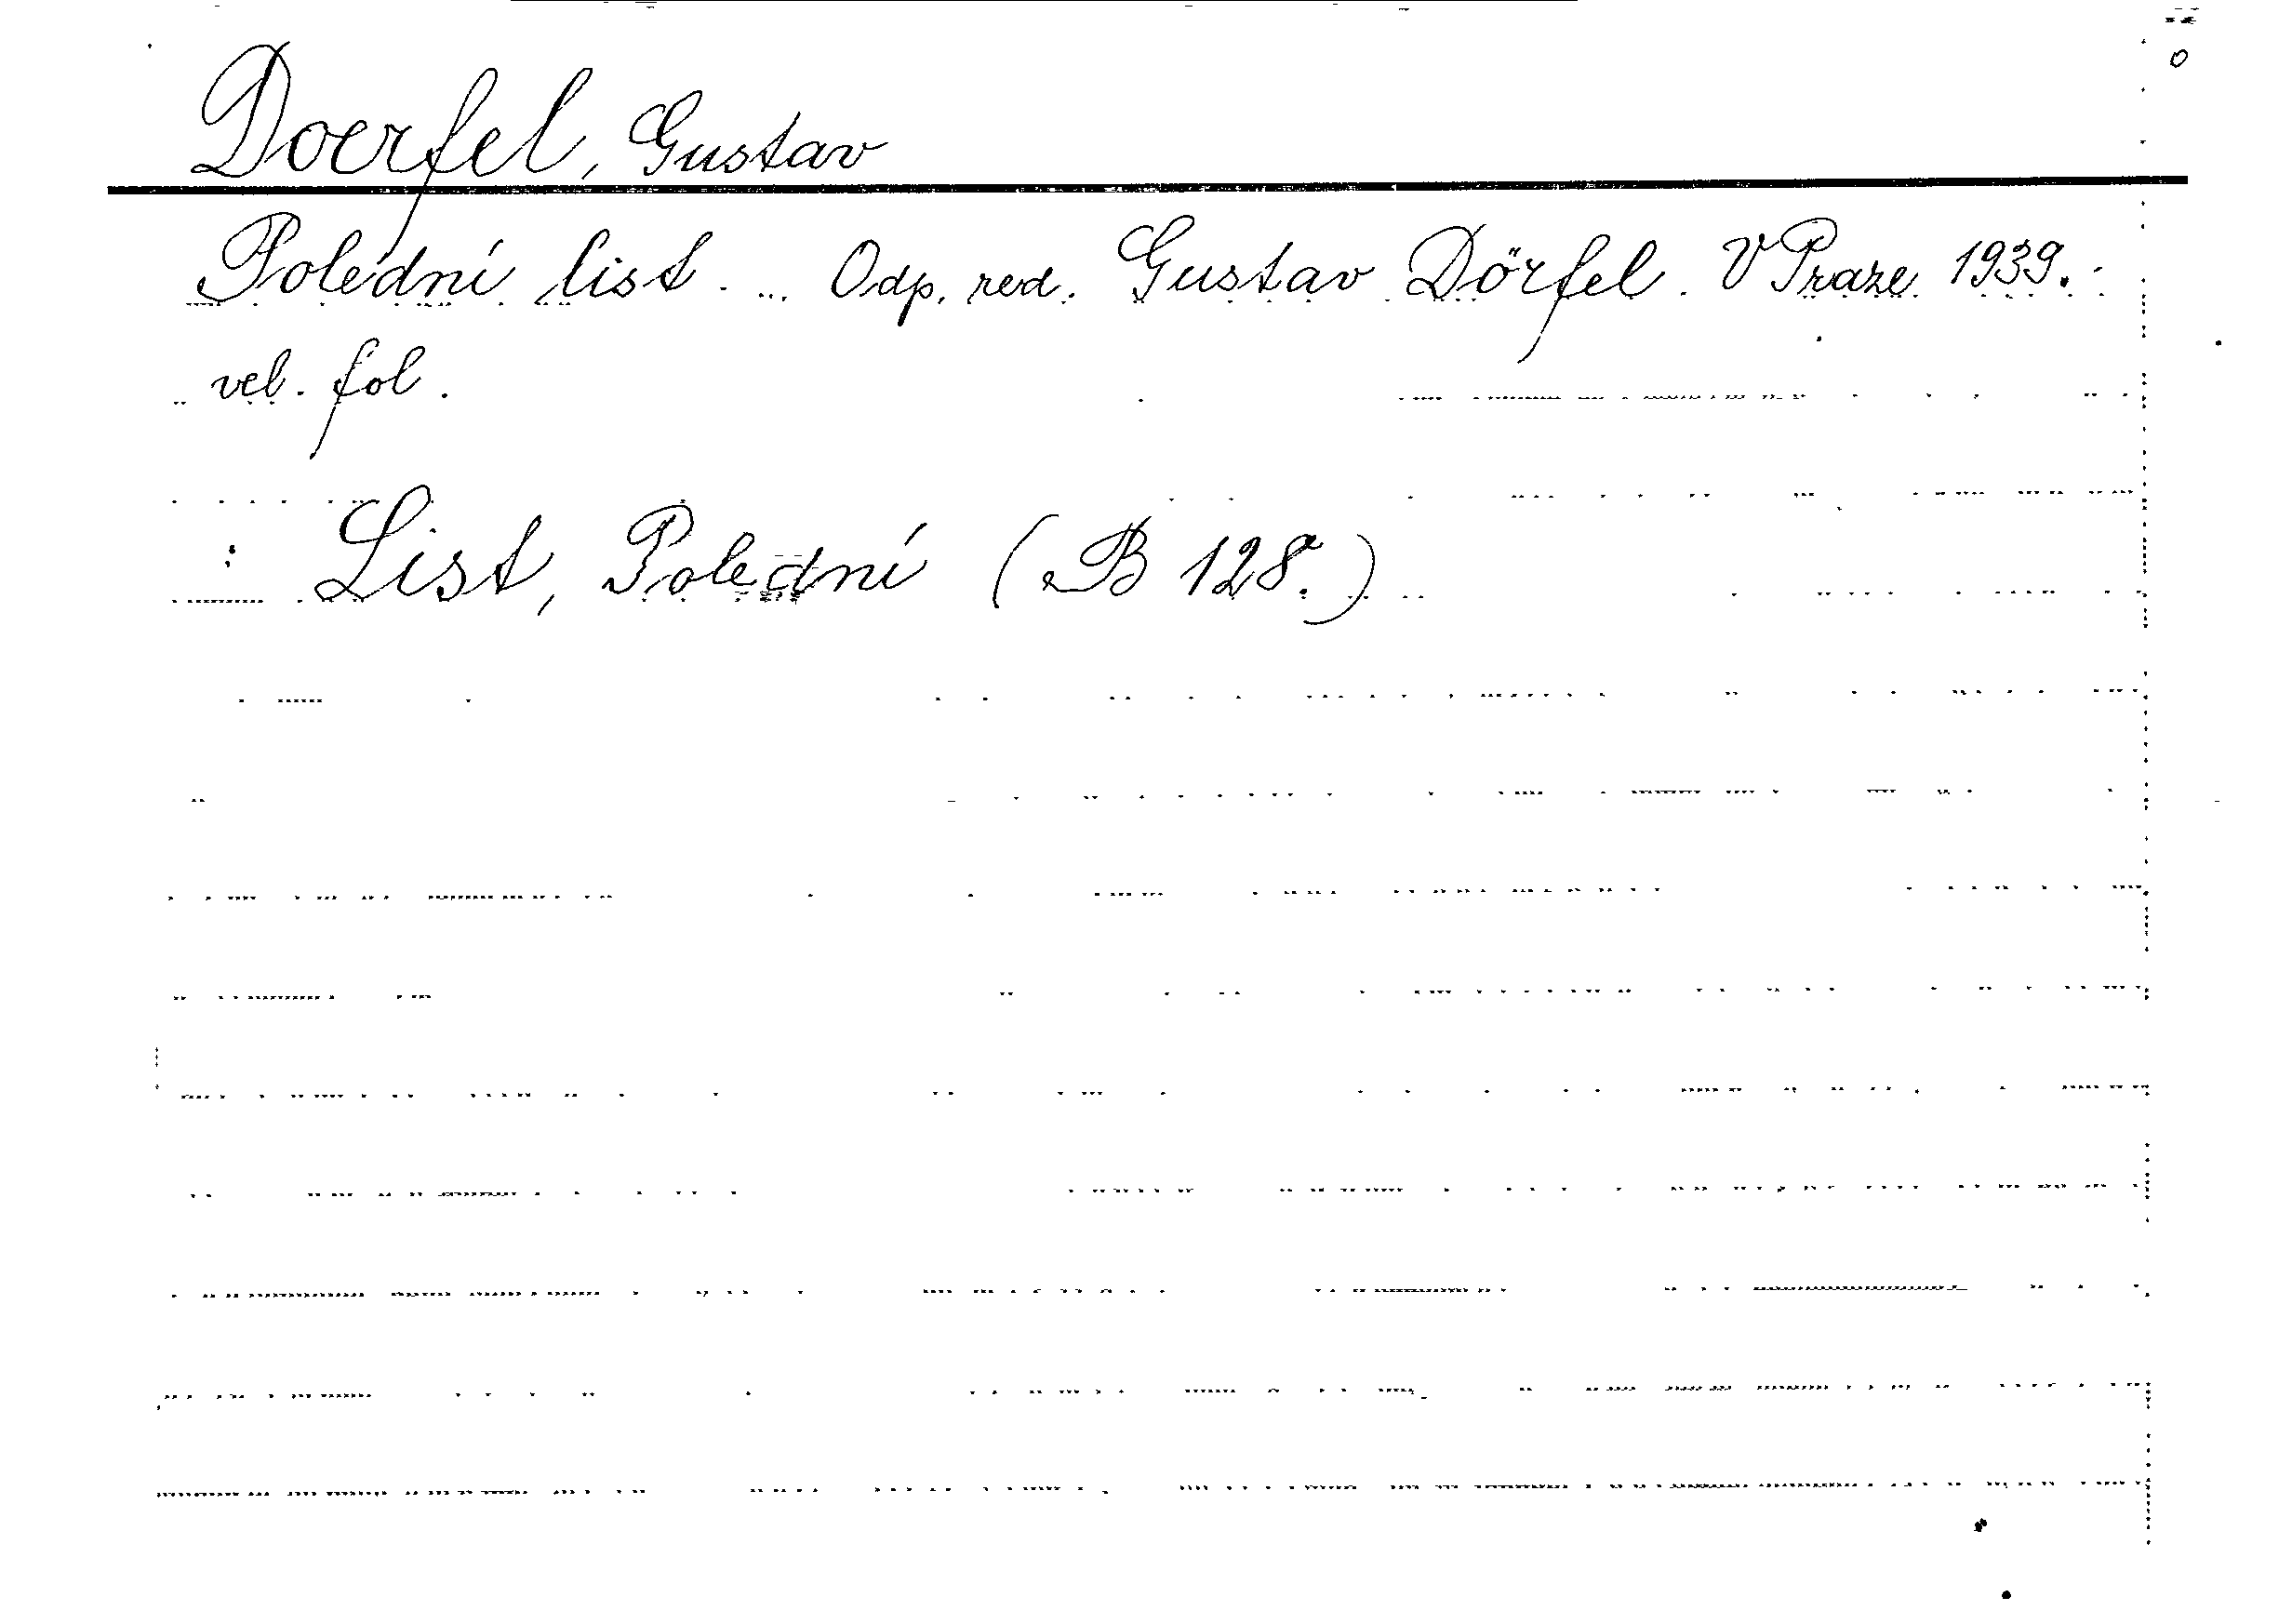 Doerfel, Gustav
Polední list. ... Odp. red. Gustav Dörfel. V Praze 1939.-
vel. fol.
: List, Polední (B 128.)